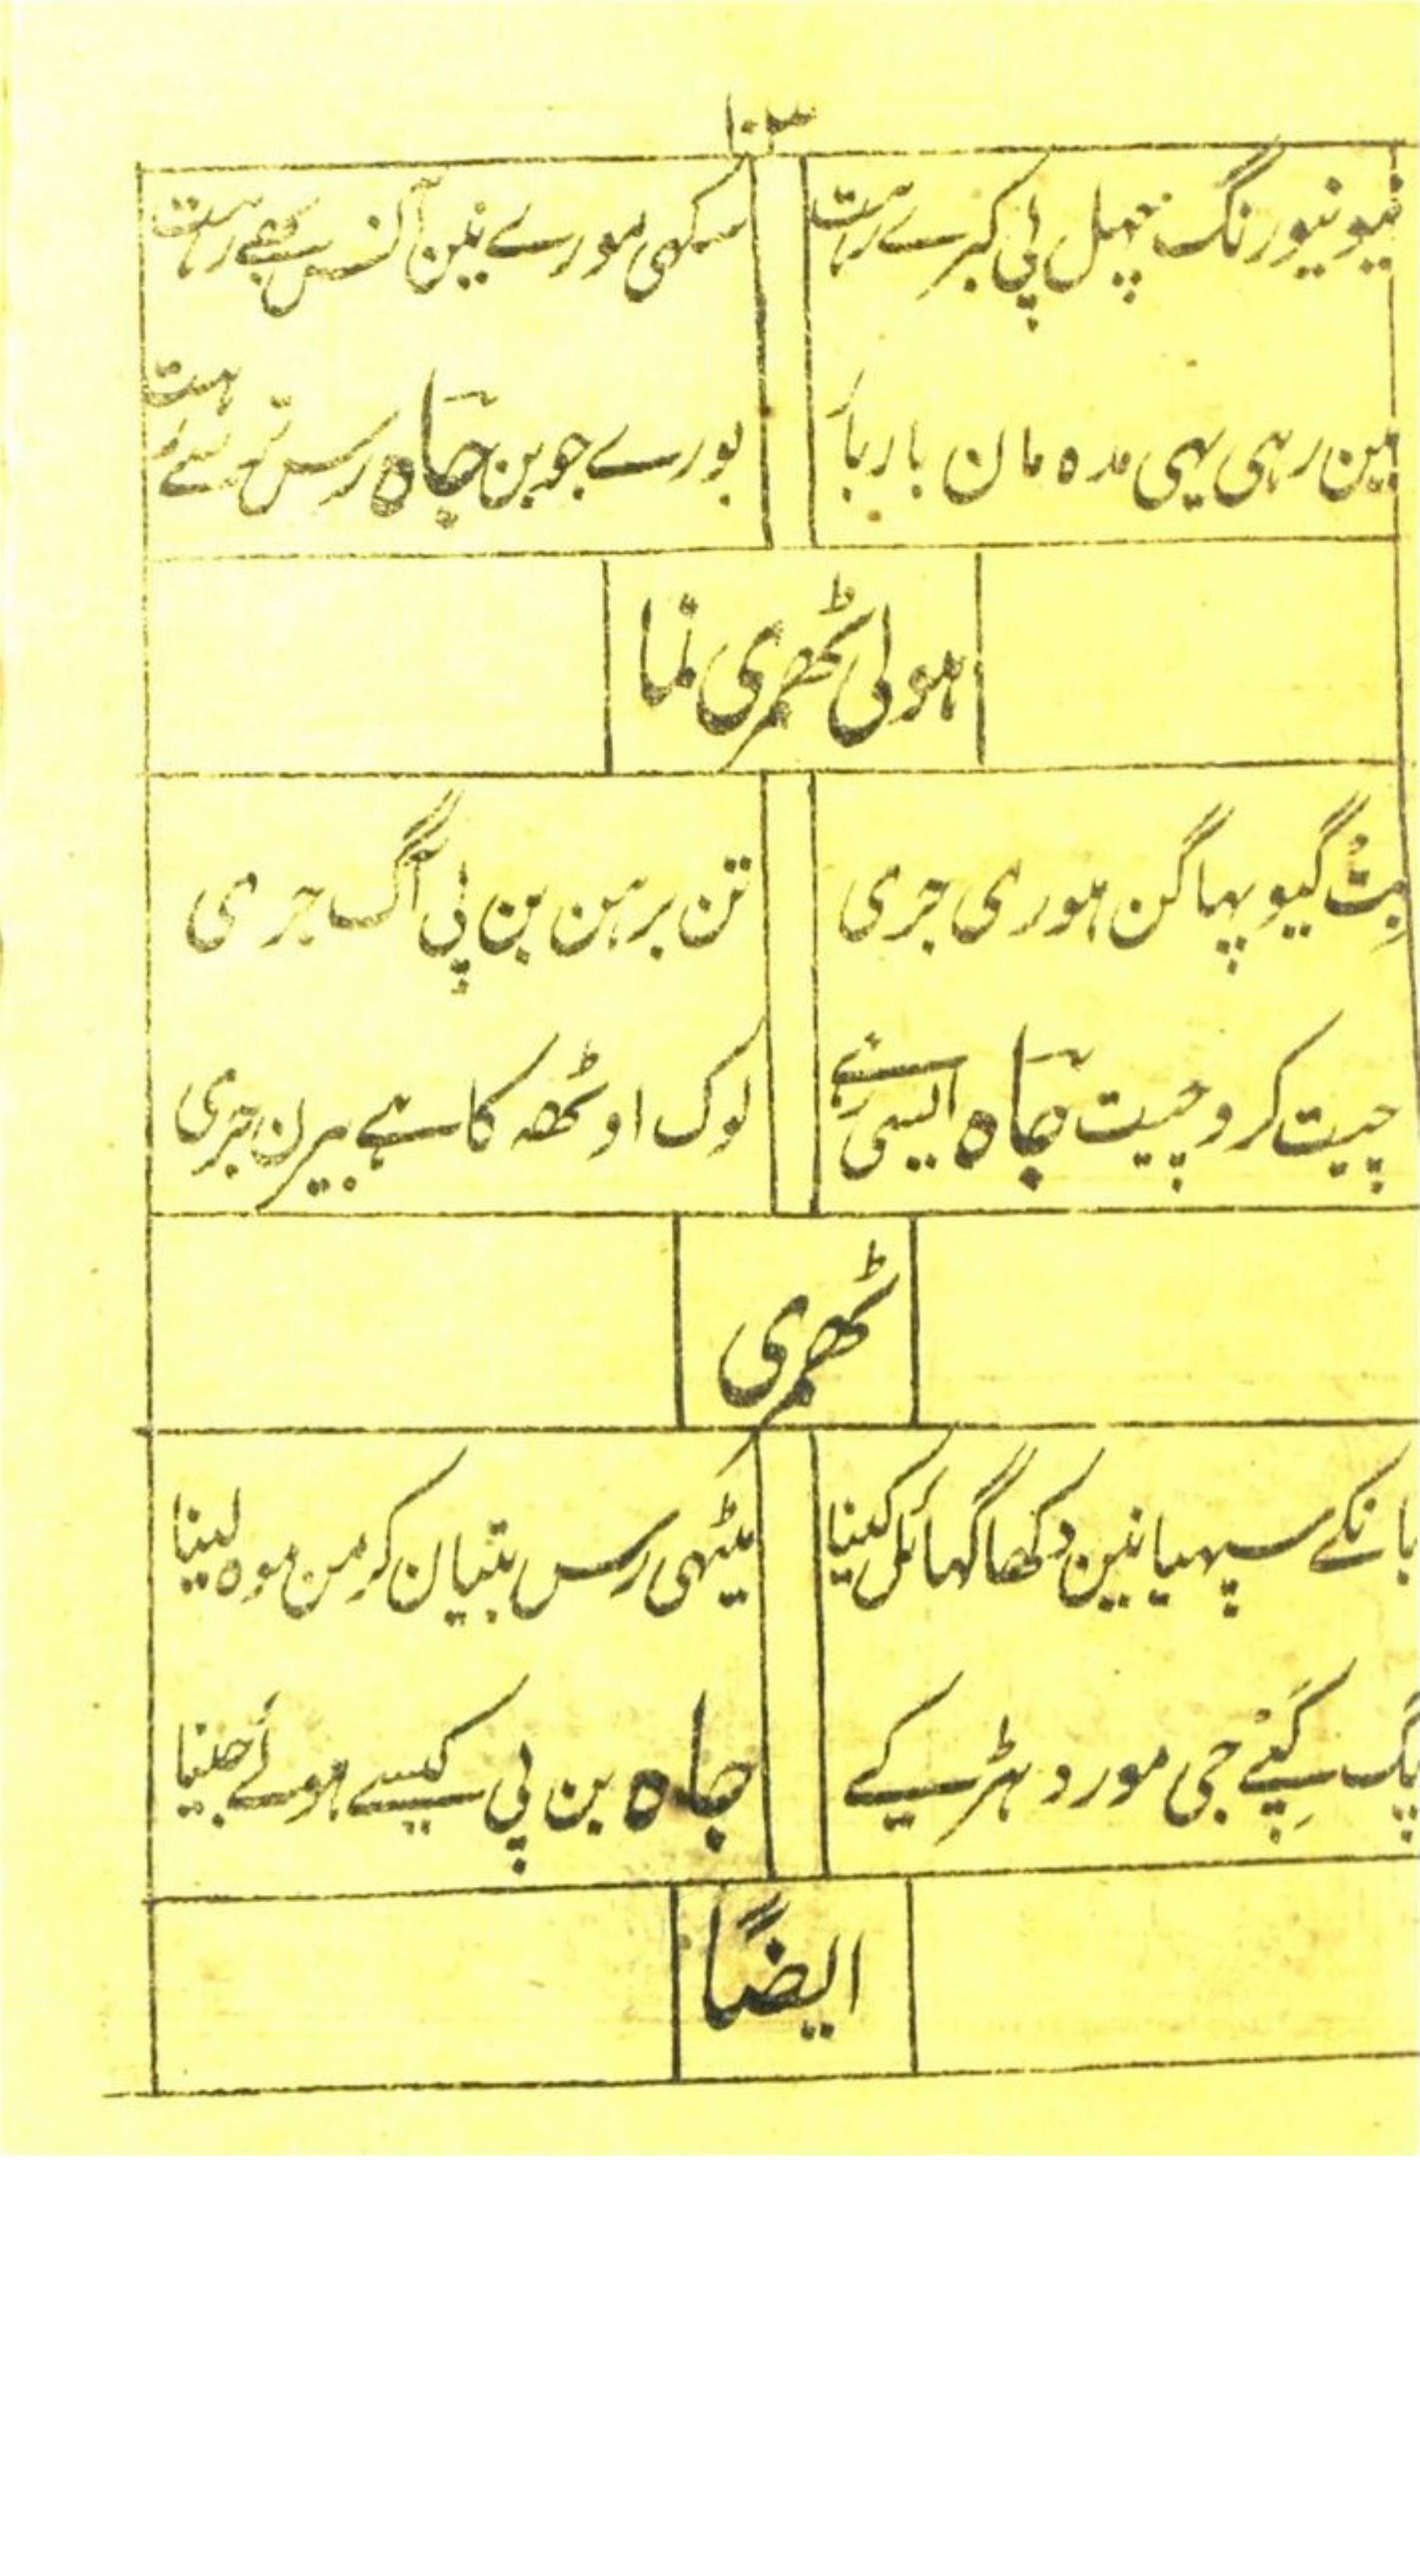 ۱۰۳
نیو نیو رنگ چہل پی کبرے رہت
سکھی مورے نین آنس بھے رہت
مین رہی یہی مدہ مان بار بار
بورے جوبن چاہ رس تو سے ہت
ہولی ٹھمری نما
بِتْ گیو پہاگن ہوری جری
تن برہن بن پی آگ جری
چیت کرو چیت چاہ ایسی رہے
لوک اوٹھہ کا ہے بیرن جری
ٹھمری
بانکے سپہیا نین دکھا گہائل کینا
میٹہی رس بتیان کر من موہ لینا
پگ کپے جی مورد ہڑ کے
چاہ بن پی کیسے ہوئے جینا
ایضاً